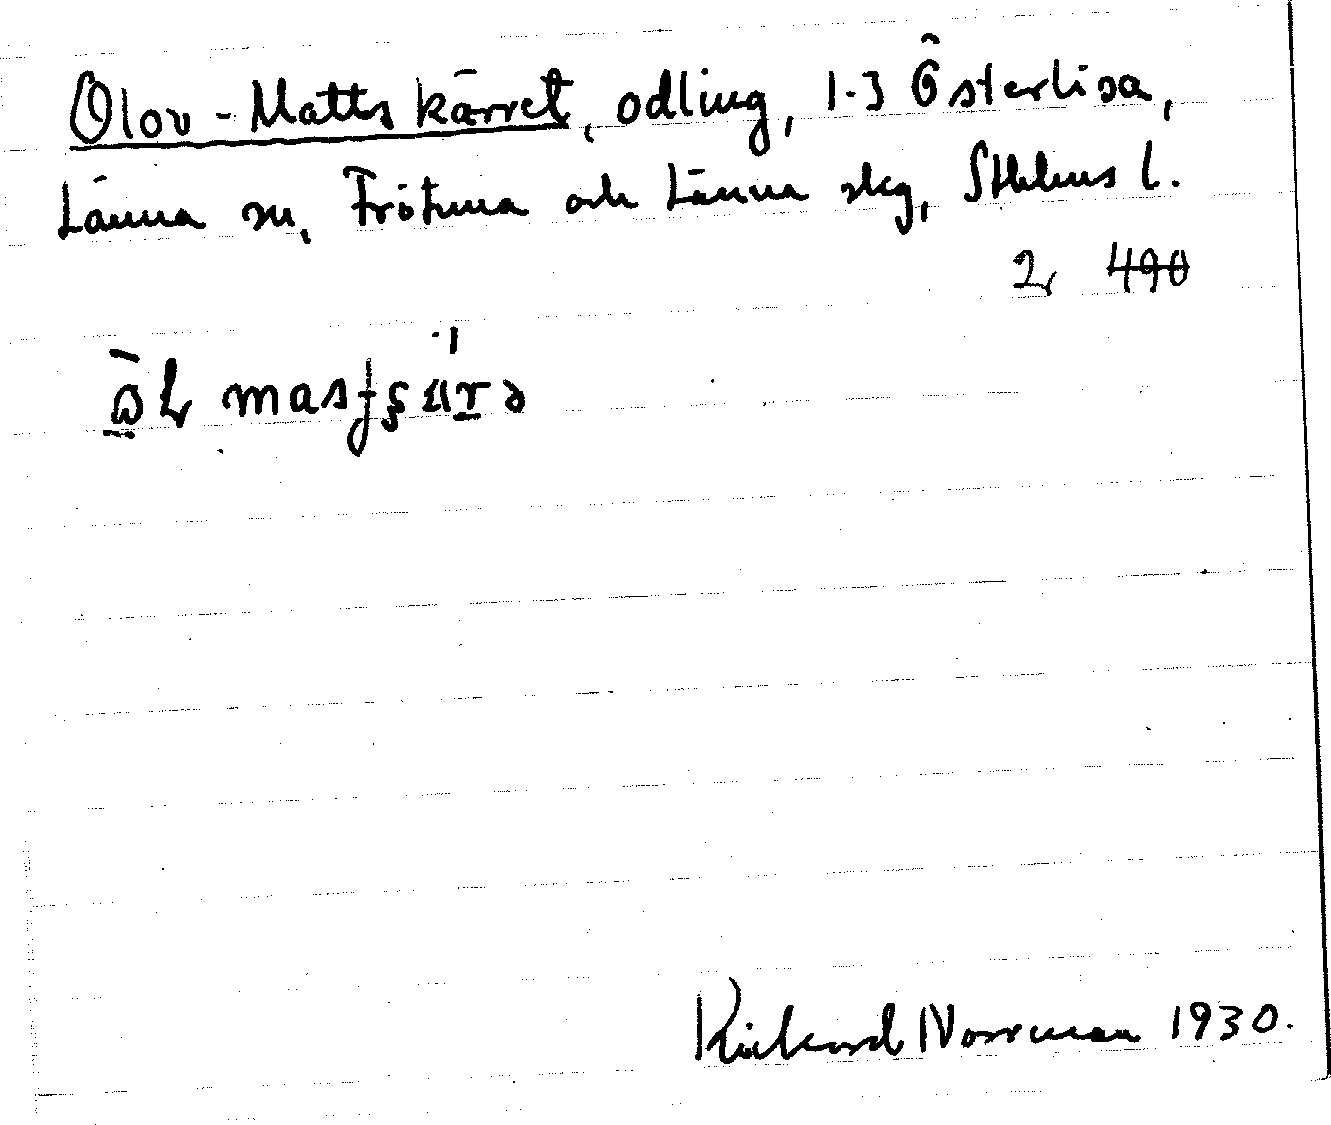 Olov-Mattskärret, odling, 1-3 Österlisa,
Länna sn, Frötuna och Länna skg, Sthlms l.
2 490
Rickard Norrman 1930.